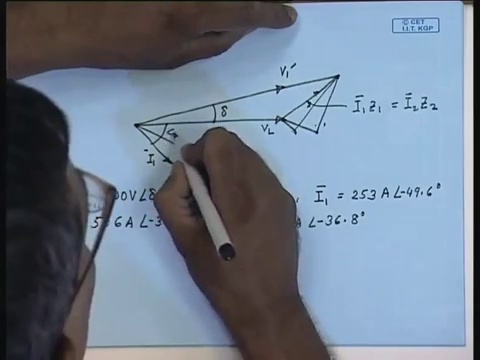 © CET
I.I.T. KGP
V₁′
δ
Ī₁Z₁ = Ī₂Z₂
V_L
Ī₁
00V∠δ
, Ī₁ = 253 A∠-49.6°
6A∠-3
A∠-36.8°